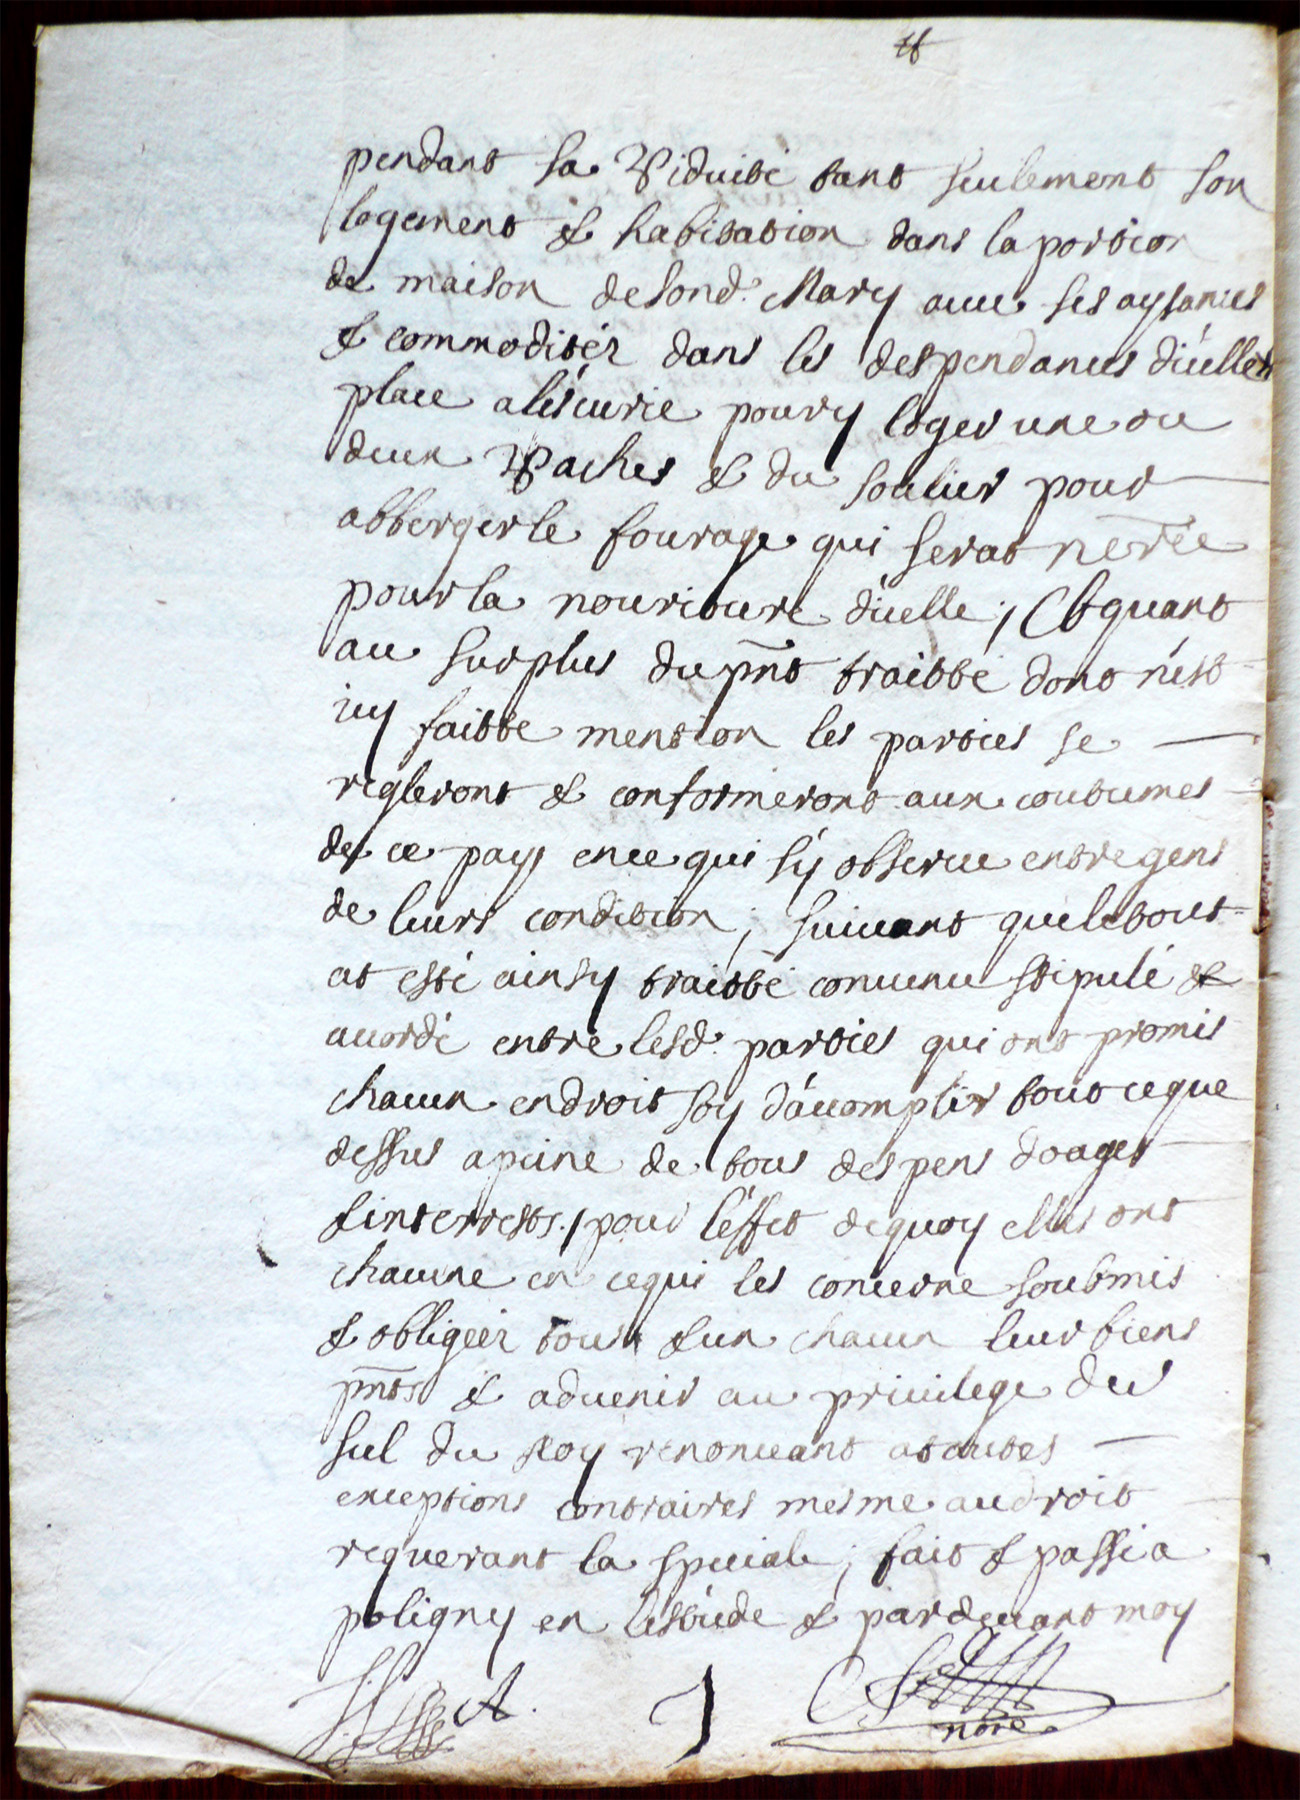 pendant sa Viduité tant seulement son
logement & habitation dans la portion
de maison de sond. Mary auec ses aysances
& commoditéz dans les despendances d'icelle &
place a l'escurie pour y loger une ou
deux Vaches & du soulier pour
abberger le fourage qui serat nece͠re
pour la nouriture d'icelle ; Et quant
au surplus du pn͠t traitté dont n'est
icy faitte mention les parties se
regleront & conformeront aux coutumes
de ce pays en ce qui s'y obserue entre gens
de leurs condition ; suiuant que le tout
at esté ainsy traitté conuenu stipulé &
accordé entre lesd. parties qui ont promis
chacun endroit soy d'accomplir tout ce que
dessus a peine de tous despens d'oages
& interrests. / pour l'effet de quoy elles ont
chacune en ce qui les concerne soubmis
& obligéez tous & un chacun leur biens
pn͠ts & aduenir au priuilege du
scel du Roy renonceant at outes
exceptions contraires mesme au droit
requerant la speciale ; fait & passé a
poligny en l'estude & pardeuant moy
nore